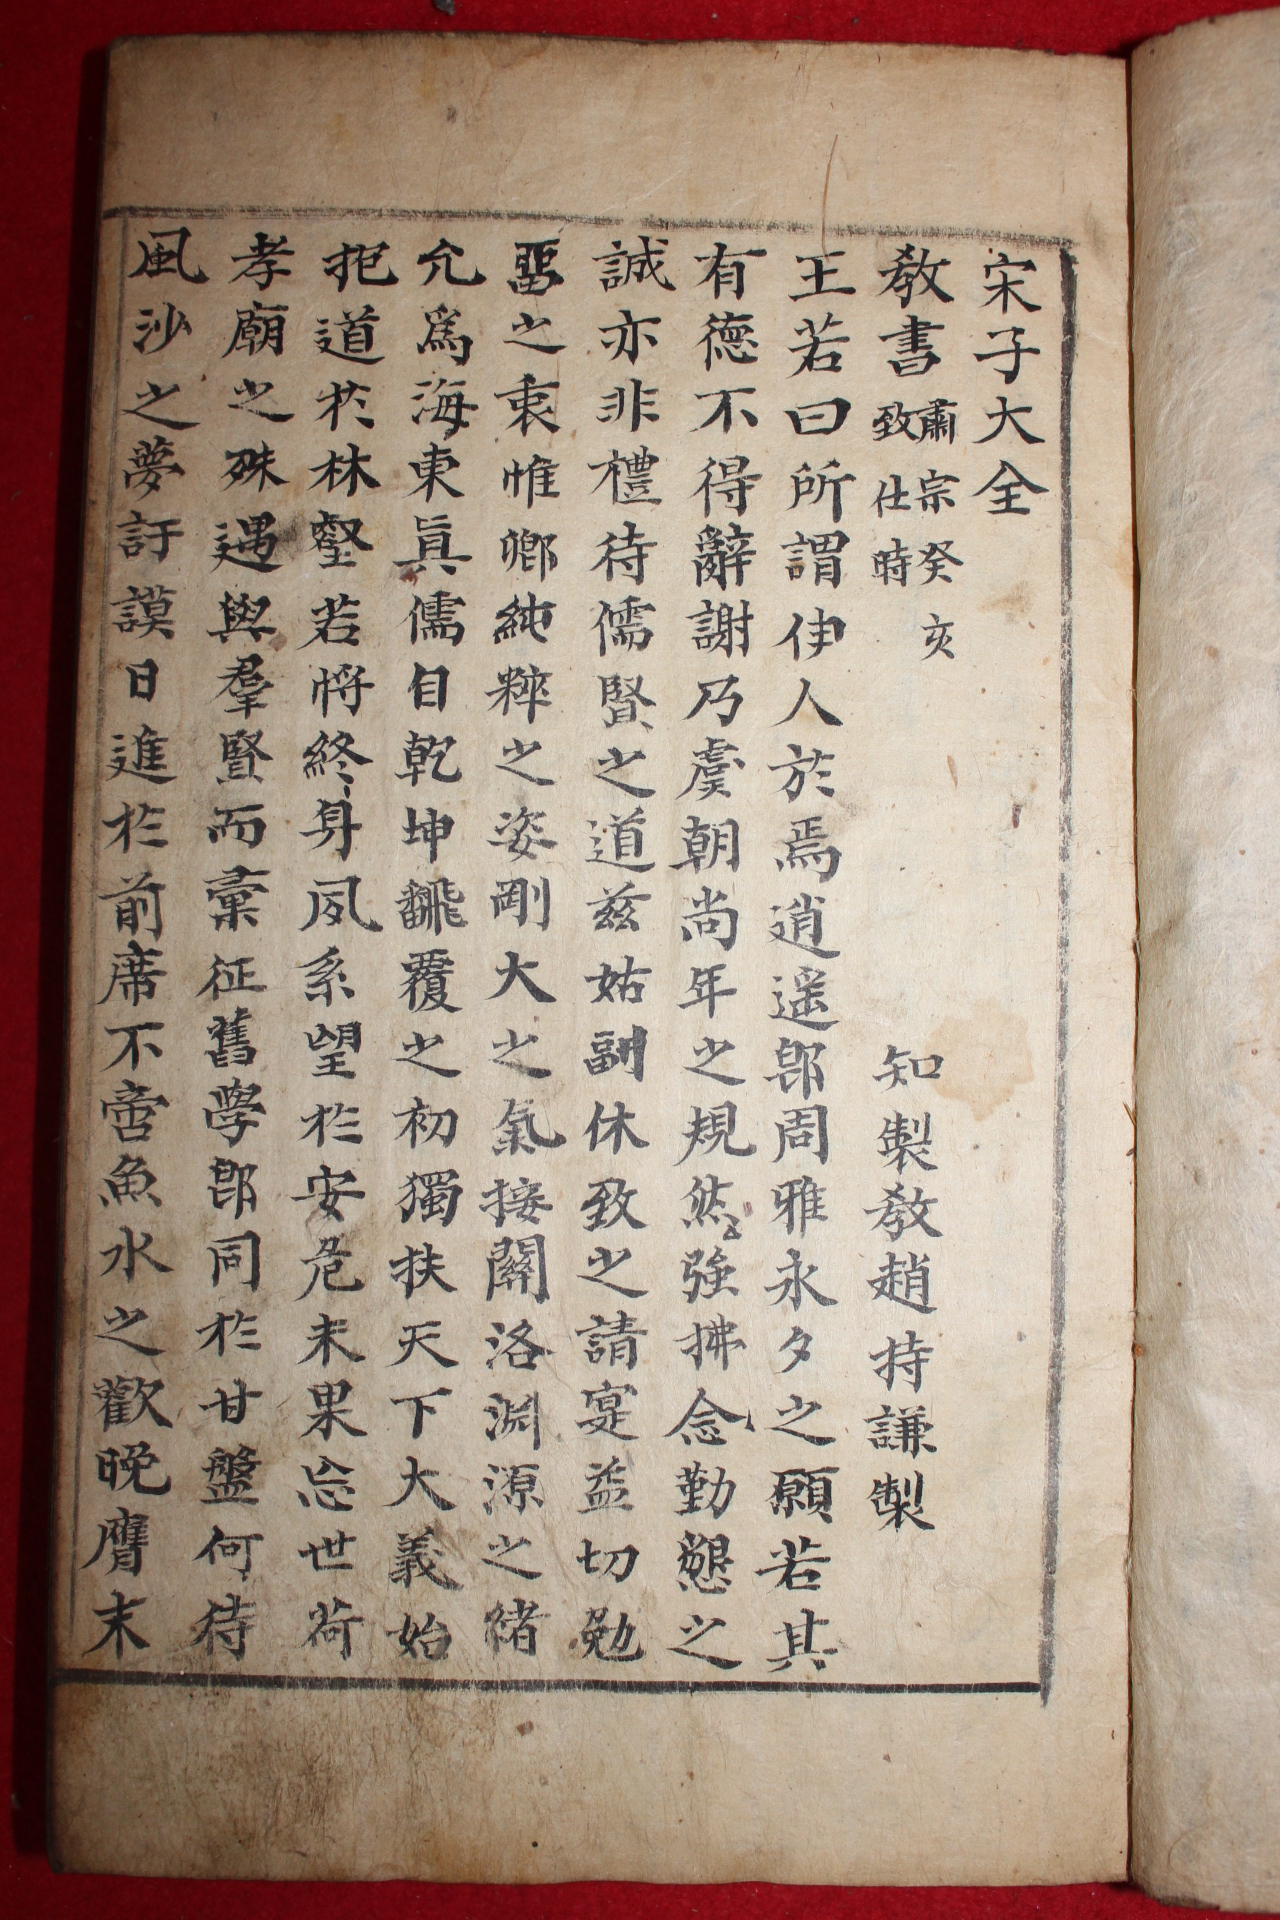 宋子大全
教書 肅宗癸亥致仕時 知製教趙持謙製
王若曰所謂伊人於焉逍遥卽周雅永夕之願若其
有德不得辭謝乃虞朝尚年之規然強拂念勤懇之
誠亦非禮待儒賢之道兹姑副休致之請寔益切勉
留之衷惟卿純粹之姿剛大之氣接關洛淵源之緒
允爲海東眞儒自乾坤飜覆之初獨扶天下大義始
抱道於林壑若將終身夙系望於安危未果忘世荷
孝廟之殊遇與羣賢而彙征舊學卽同於甘盤何待
風沙之夢訏謨日進於前席不啻魚水之歡晚膺末